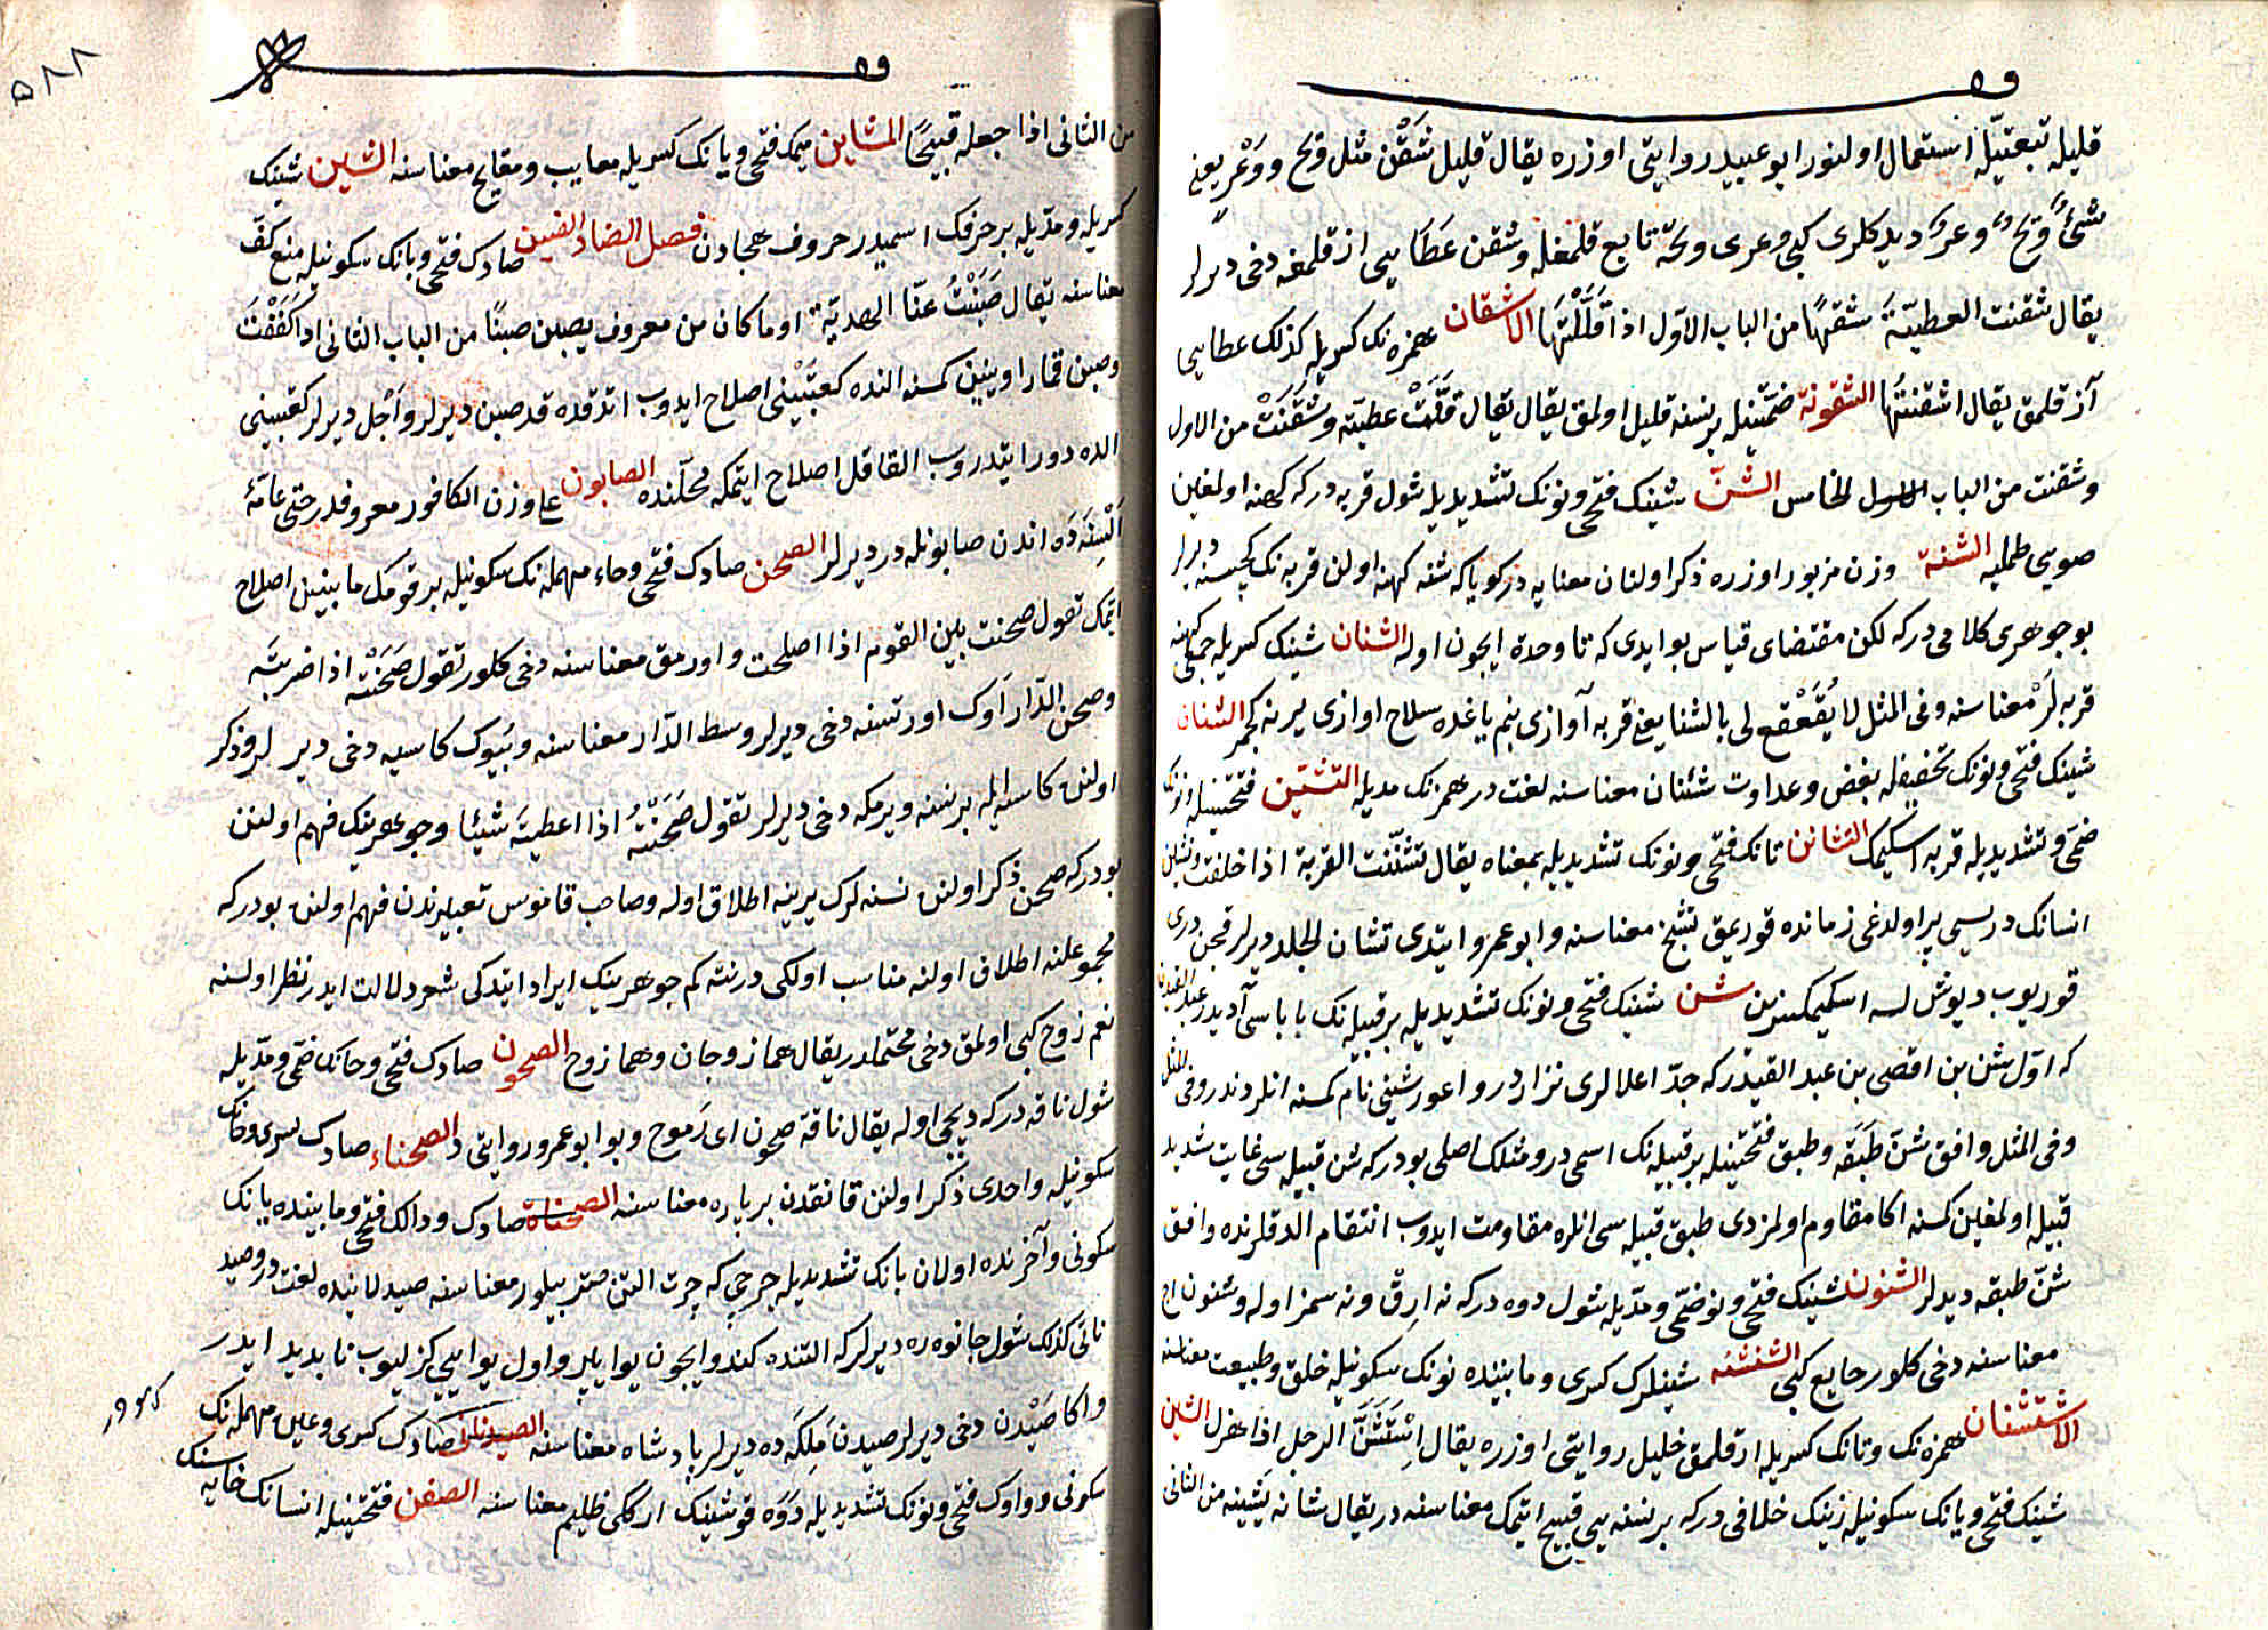 قليله تبعيّله استعمال اولنور ابو عبيد روايتى اوزره يقال قليل شَقْن مثل وتح ووَعْر يعنى
شئ وَتح وعر ديدكلرى كبى وعرى وتحه تابع قلمغله وشقن عَطَايى از قلمغه دخى ديرلر
يقال شقنت العطيّةَ شقنًا من الباب الاوّل اذا قَلَّلْتَها الاشقان همزه نك كسريله كذلك عطايى
آز قلمق يقال اشقنتُها الشقونة ضمّتينله بر نسنه قليل اولمق يقال قَلَّتْ عطيّته وشَقُنَتْ من الاول
وشقنت من الباب الخامس الشنّ شينك فتحى ونونك تشديديله شول قربه در كه كهنه اولمغين
صويى طمليه الشنة وزن مزبور اوزره ذكر اولنان معنايه در كويا كه شنه كهنه اولن قربه نك كچيسنه ديرلر
بو جوهرى كلامى در كه لكن مقتضاى قياس بو ايدى كه تا وحدة ايچون اوله الشنان شينك كسريله جمعى كهنه
قربه لَرْ معناسنه وفى المثل لا يُقَعْقع لى بالشنان يعنى قربه آوازى بنم ياغده سلاح اوازى يرينه كچمز الشنان
شينك فتحى ونونك تخفيفله بغض وعداوت شنئان معناسنه لغت در همزنك مديله التشنّن فتحتينله ونونك
ضمّى وتشديديله قربه اسكيمك التشانن تانك فتحى ونونك تشديديله بمعناه يقال تشنّنت القربة اذا خلقت وتشانن
انسانك دريسى پير اولدغى زمانده قوريمق تشنّج معناسنه وابو عمرو ايتدى تشان الجلد ديرلر قچن درى
قوريوب ديوشلسه اسكيمكسزين شن شينك فتحى ونونك تشديديله بر قبيله نك باباسى آديدر عبد القيسدن
كه اوّل شن بن اقصى بن عبد القيدر كه جدّ اعلالرى نزاردر واعور شنّى نام كمسنه انلردندر وفى المثل
وفى المثل وافق شنّ طَبَقَه وطبق فتحتينله بر قبيله نك اسمى در ومثلك اصلى بودر كه شن قبيله سى غايت شديد
قبيله اولمغين كمسنه اكا مقاوم اولمزدى طبق قبيله سى انلره مقاومت ايدوب انتقام الدقلرنده وافق
شنّ طبقه ديدلر الشنون شينك فتحى ونونك ضمّى ومدّيله شول دوه در كه نه ارِقْ ونه سمز اوله وشنون اج
معناسنه دخى كلور جايع كبى الشنشنه شينلرك كسرى وما بيننده نونك سكونيله خلق وطبيعت معناسنه
الاستشنان همزه نك وتانك كسريله ارقلمق خليل روايتى اوزره يقال اِسْتَشَنَّ الرجل اذا هزل الشين
شينك فتحى ويانك سكونيله زينك خلافى در كه بر نسنه يى قبيح ايتمك معناسنه در يقال شانه يَشينه من الثانى
٥٨٨
من الثانى اذا جعله قبيحًا المشاين ميمك فتحى ويانك كسريله معايب ومقابح معناسنه الشين شينك
كسريله ومدّيله بر حرفك اسميدر حروف هجادن فصل الضاد الضبن صادك فتحى وبانك سكونيله منع كفّ
معناسنه يقال صَبَنْتُ عنّا الهديّة او ما كان من معروف يصبن صبنًا من الباب الثانى اذا كَفَفْتَ
وصبن قمار اوينين كمسنه النده كعبَتَيْنى اصلاح ايدوب اتدقده قد صبن ديرلر واَجْل ديرلر كعبتينى
الده دور ايتدروب القا قل اصلاح ايتمكه محلّنده الصابون على وزن الكافور معروفدر حتى عامّهٔ
اَلْسِنَه دَه اندن صابونله در ديرلر الصحن صادك فتحى وحاء مهمله نك سكونيله بر قومك ما بينين اصلاح
ايتمك تقول صحنت بين القوم اذا اصلحت واورمق معناسنه دخى كلور تقول صَحَنْته اذا ضربته
وصحن الدّار اَوك اورتسنه دخى ديرلر وسط الدّار معناسنه وبُيوك كاسيه دخى ديرلر وذكر
اولنن كاسه ايله بر نسنه ويرمكه دخى ديرلر تقول صَحَنْتُهُ اذا اعطيتَه شيئا وجوهرينك فهم اولنن
بودر كه صحن ذكر اولنن نسنه لرك يرينه اطلاق اوله وصاحب قاموس تعبيرندن فهم اولنن بودر كه
مجموعلنه اطلاق اولنه مناسب اولكى درنته كم جوهرينك ايراد ايتدكى شعر دلالت ايدر نظر اولسنه
نعم زوج كبى اولمق دخى محتملدر يقال هما زوجان وهما زوج الصحون صادك فتحى وحانك ضمّى ومدّيله
شول ناقه در كه ديچى اوله يقال ناقة صحون اى رَموح وبو ابو عمرو روايتى در الصحناء صادك كسرى وحانك
سكونيله واحدى ذكر اولنن قانقدن بر پاره معناسنه الصحناة صادك ودالك فتحى وما بيننده يانك
سكونى وآخرنده اولان بانك تشديديله چرچى كه چرت التن صتر بيلور معناسنه صيدلانيده لغت در وصيد
نانى كذلك شول جانوه ره ديرلر كه التنده كندو ايچون يوا ياپر واول يوايى كزليوب ناپديد ايدر
واكا صَيْدن دخى ديرلر صيدن مَلِكَه ده ديرلر پادشاه معناسنه الصيدنانى صادك كسرى وعين مهمله نك
سكونى وواوك فتحى ونونك تشديديله دَوَه قوشينك اركى ظليم معناسنه الصفن فتحتينله انسانك خايه سنك